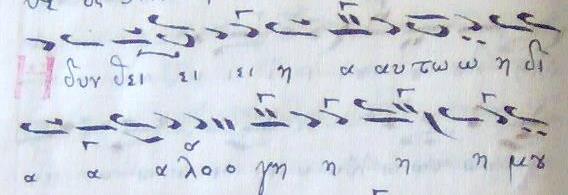 Η δυν θει ει ει η α αυ τω ω η δι
α α α λο ο γη η η η μȣ